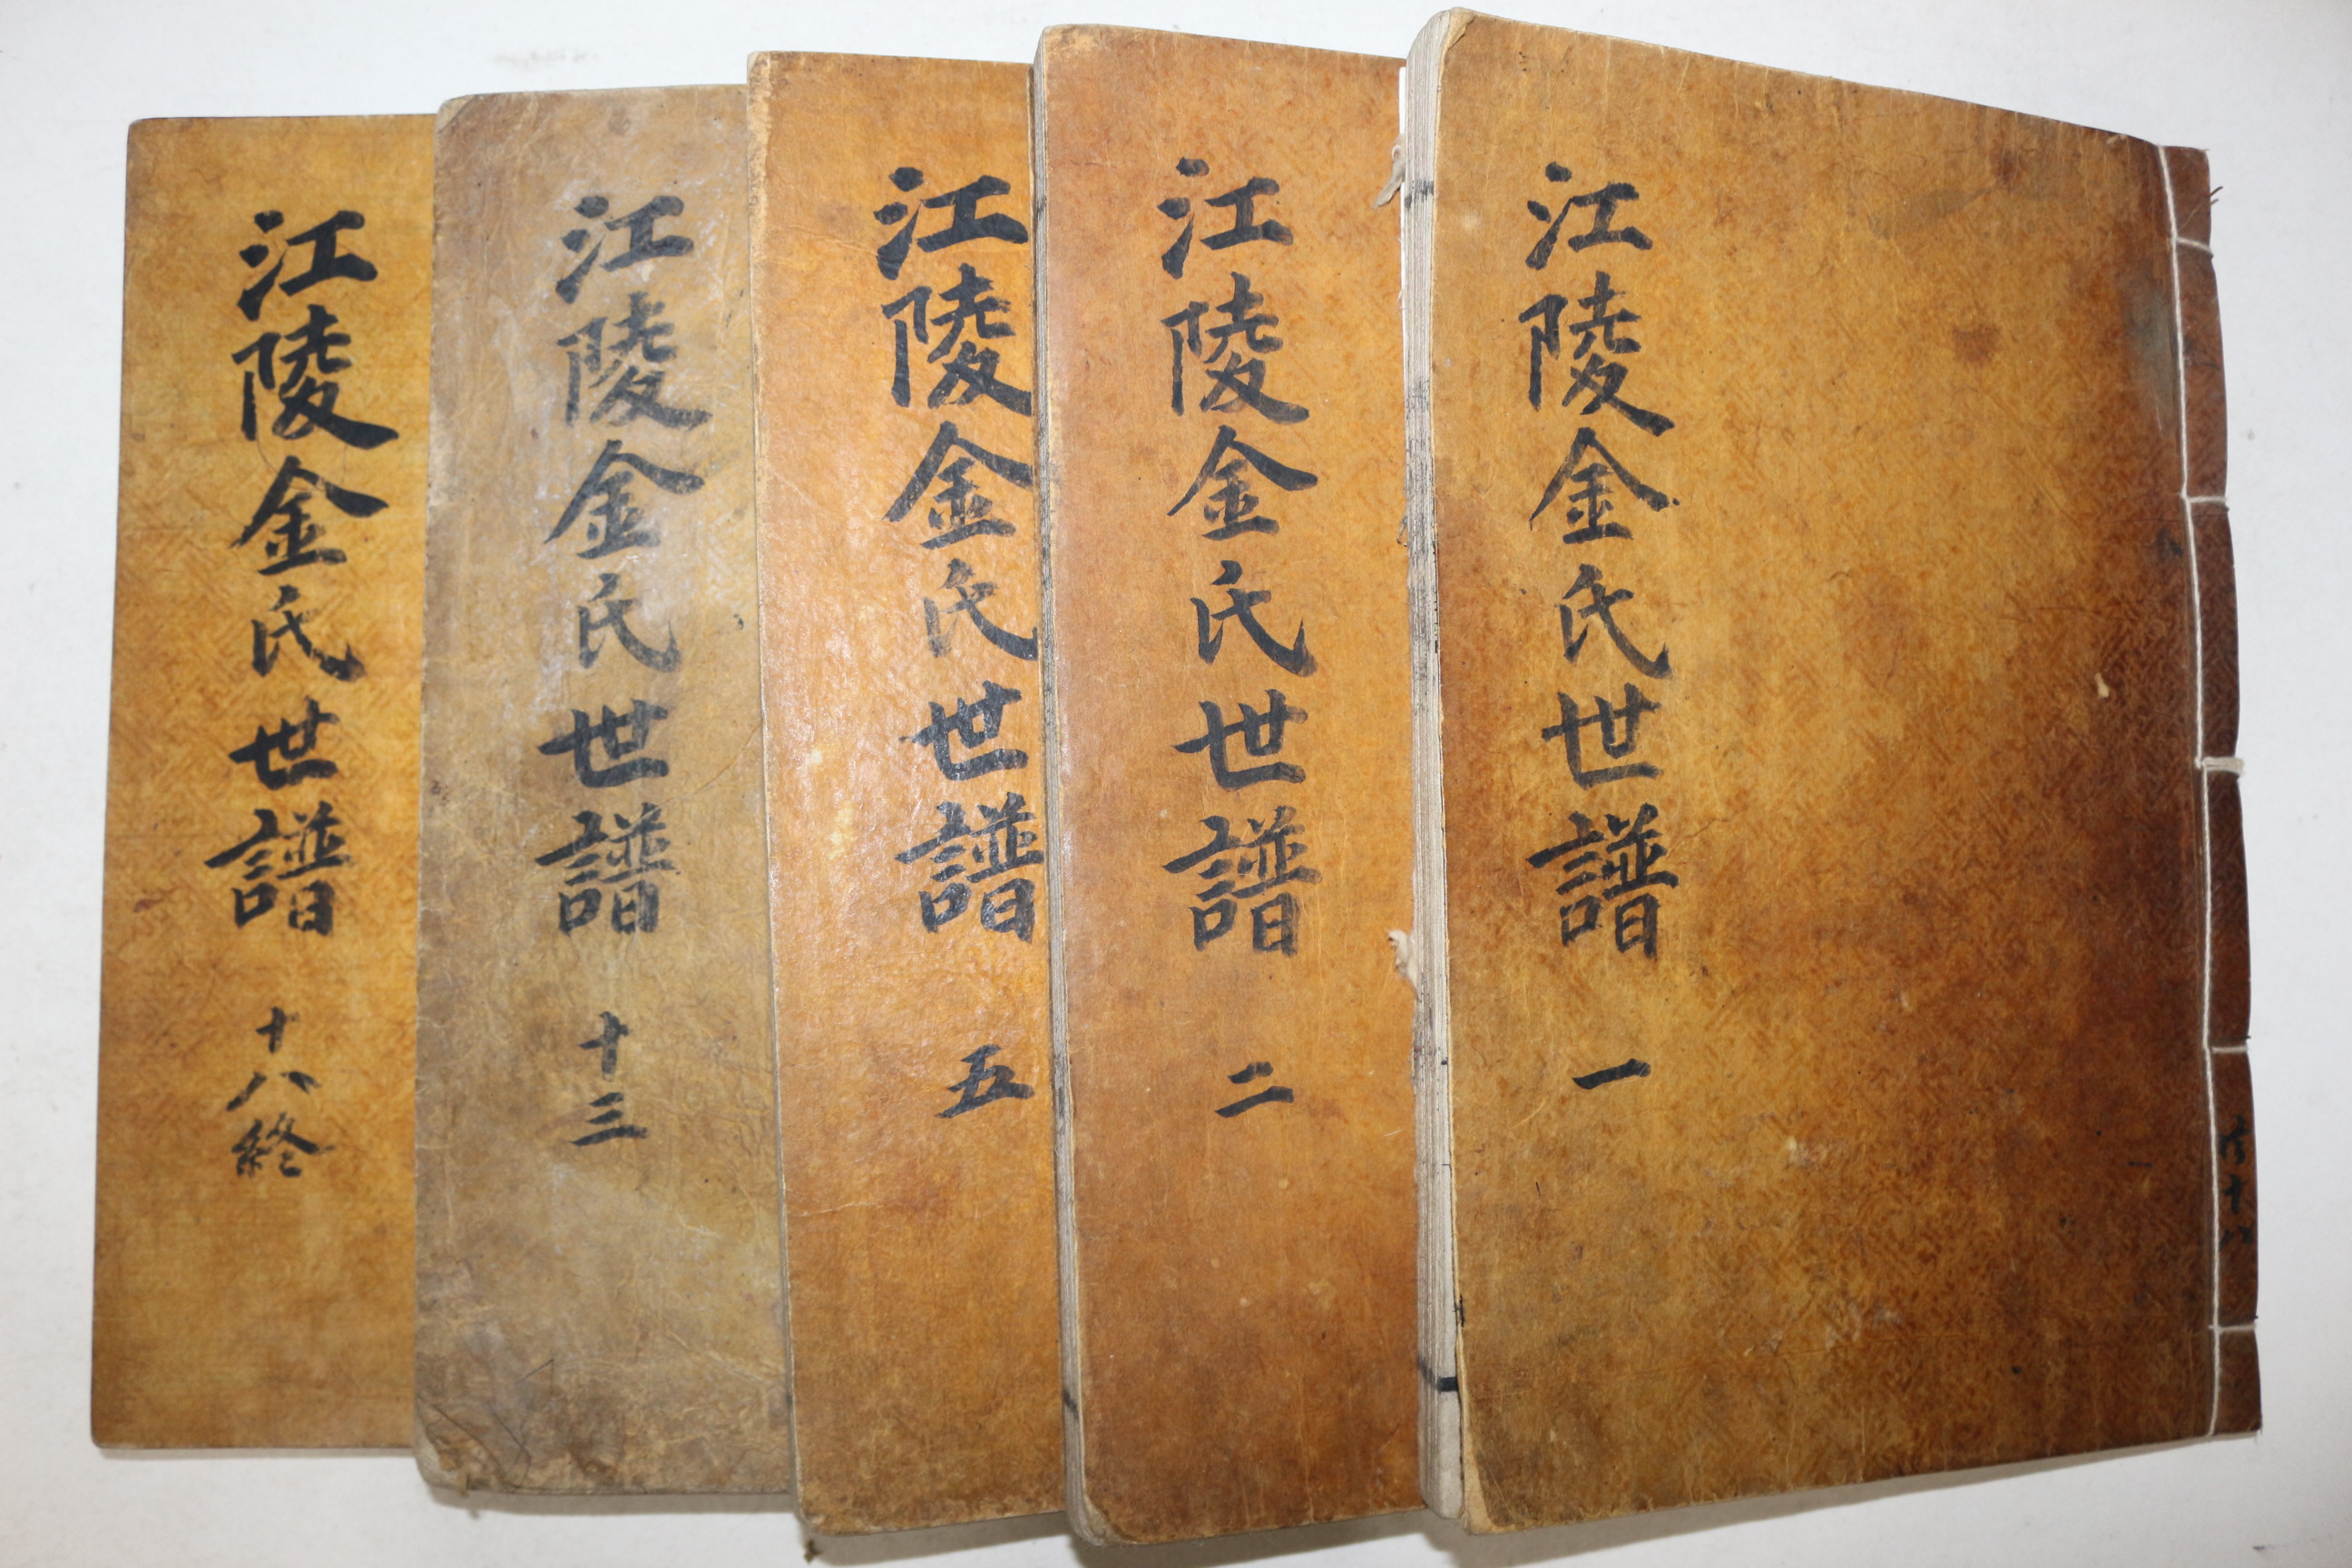 江陵金氏世譜 一
江陵金氏世譜 二
江陵金氏世譜 五
江陵金氏世譜 十三
江陵金氏世譜 十八終